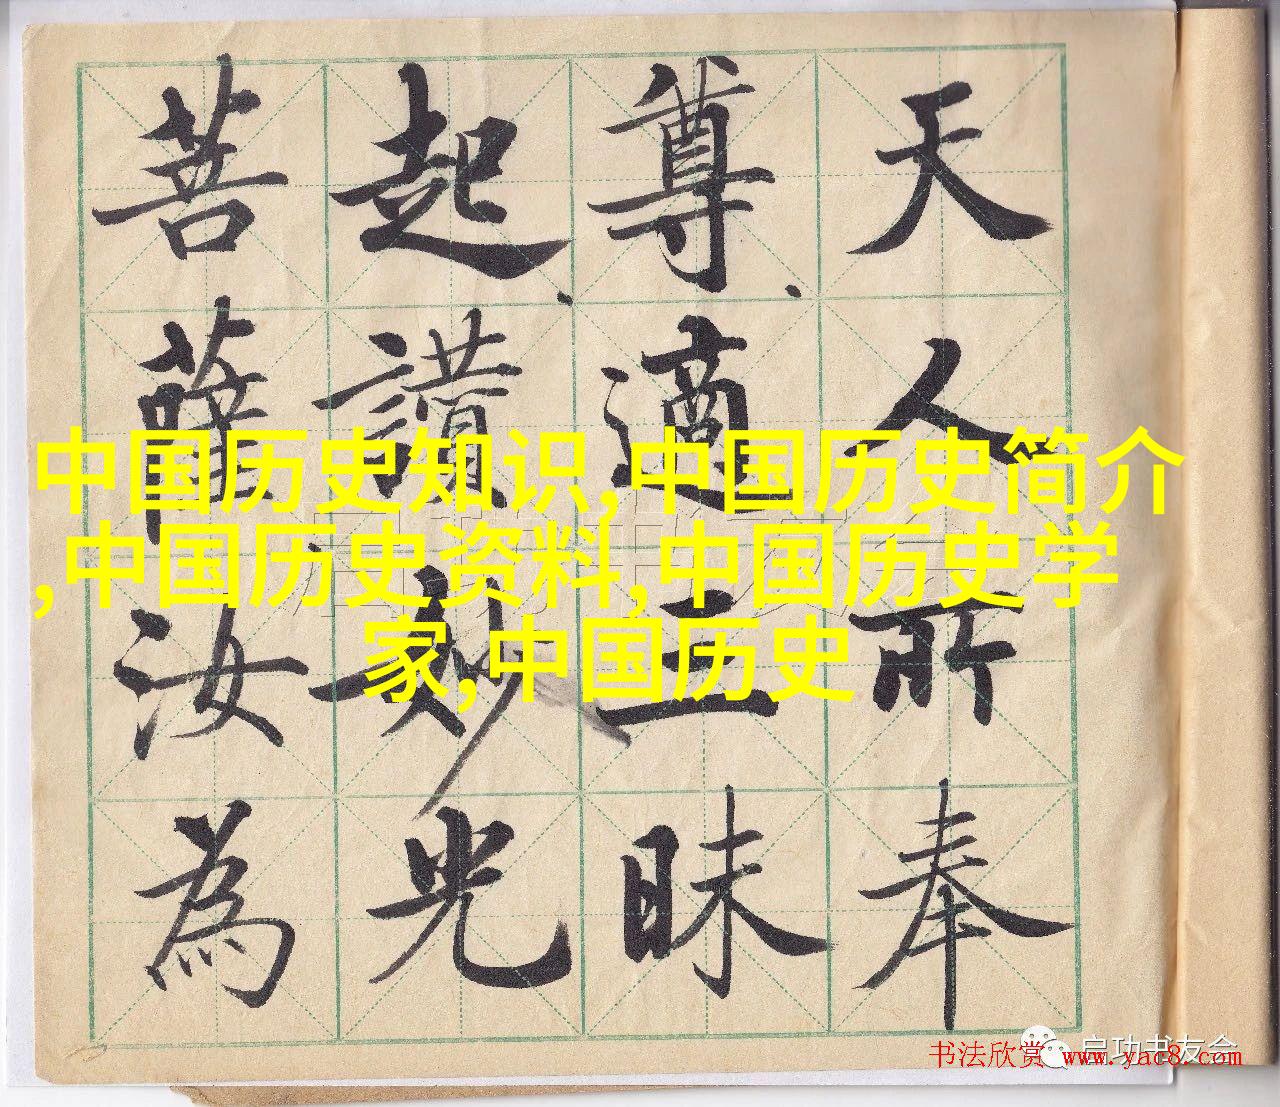 天人所奉
尊適三昧
起讚妙光
菩薩汝為
中国历史知识,中国历史简介
,中国历史资料,中国历史学
家,中国历史
启功书友会
书法欣赏 www.yac8.com